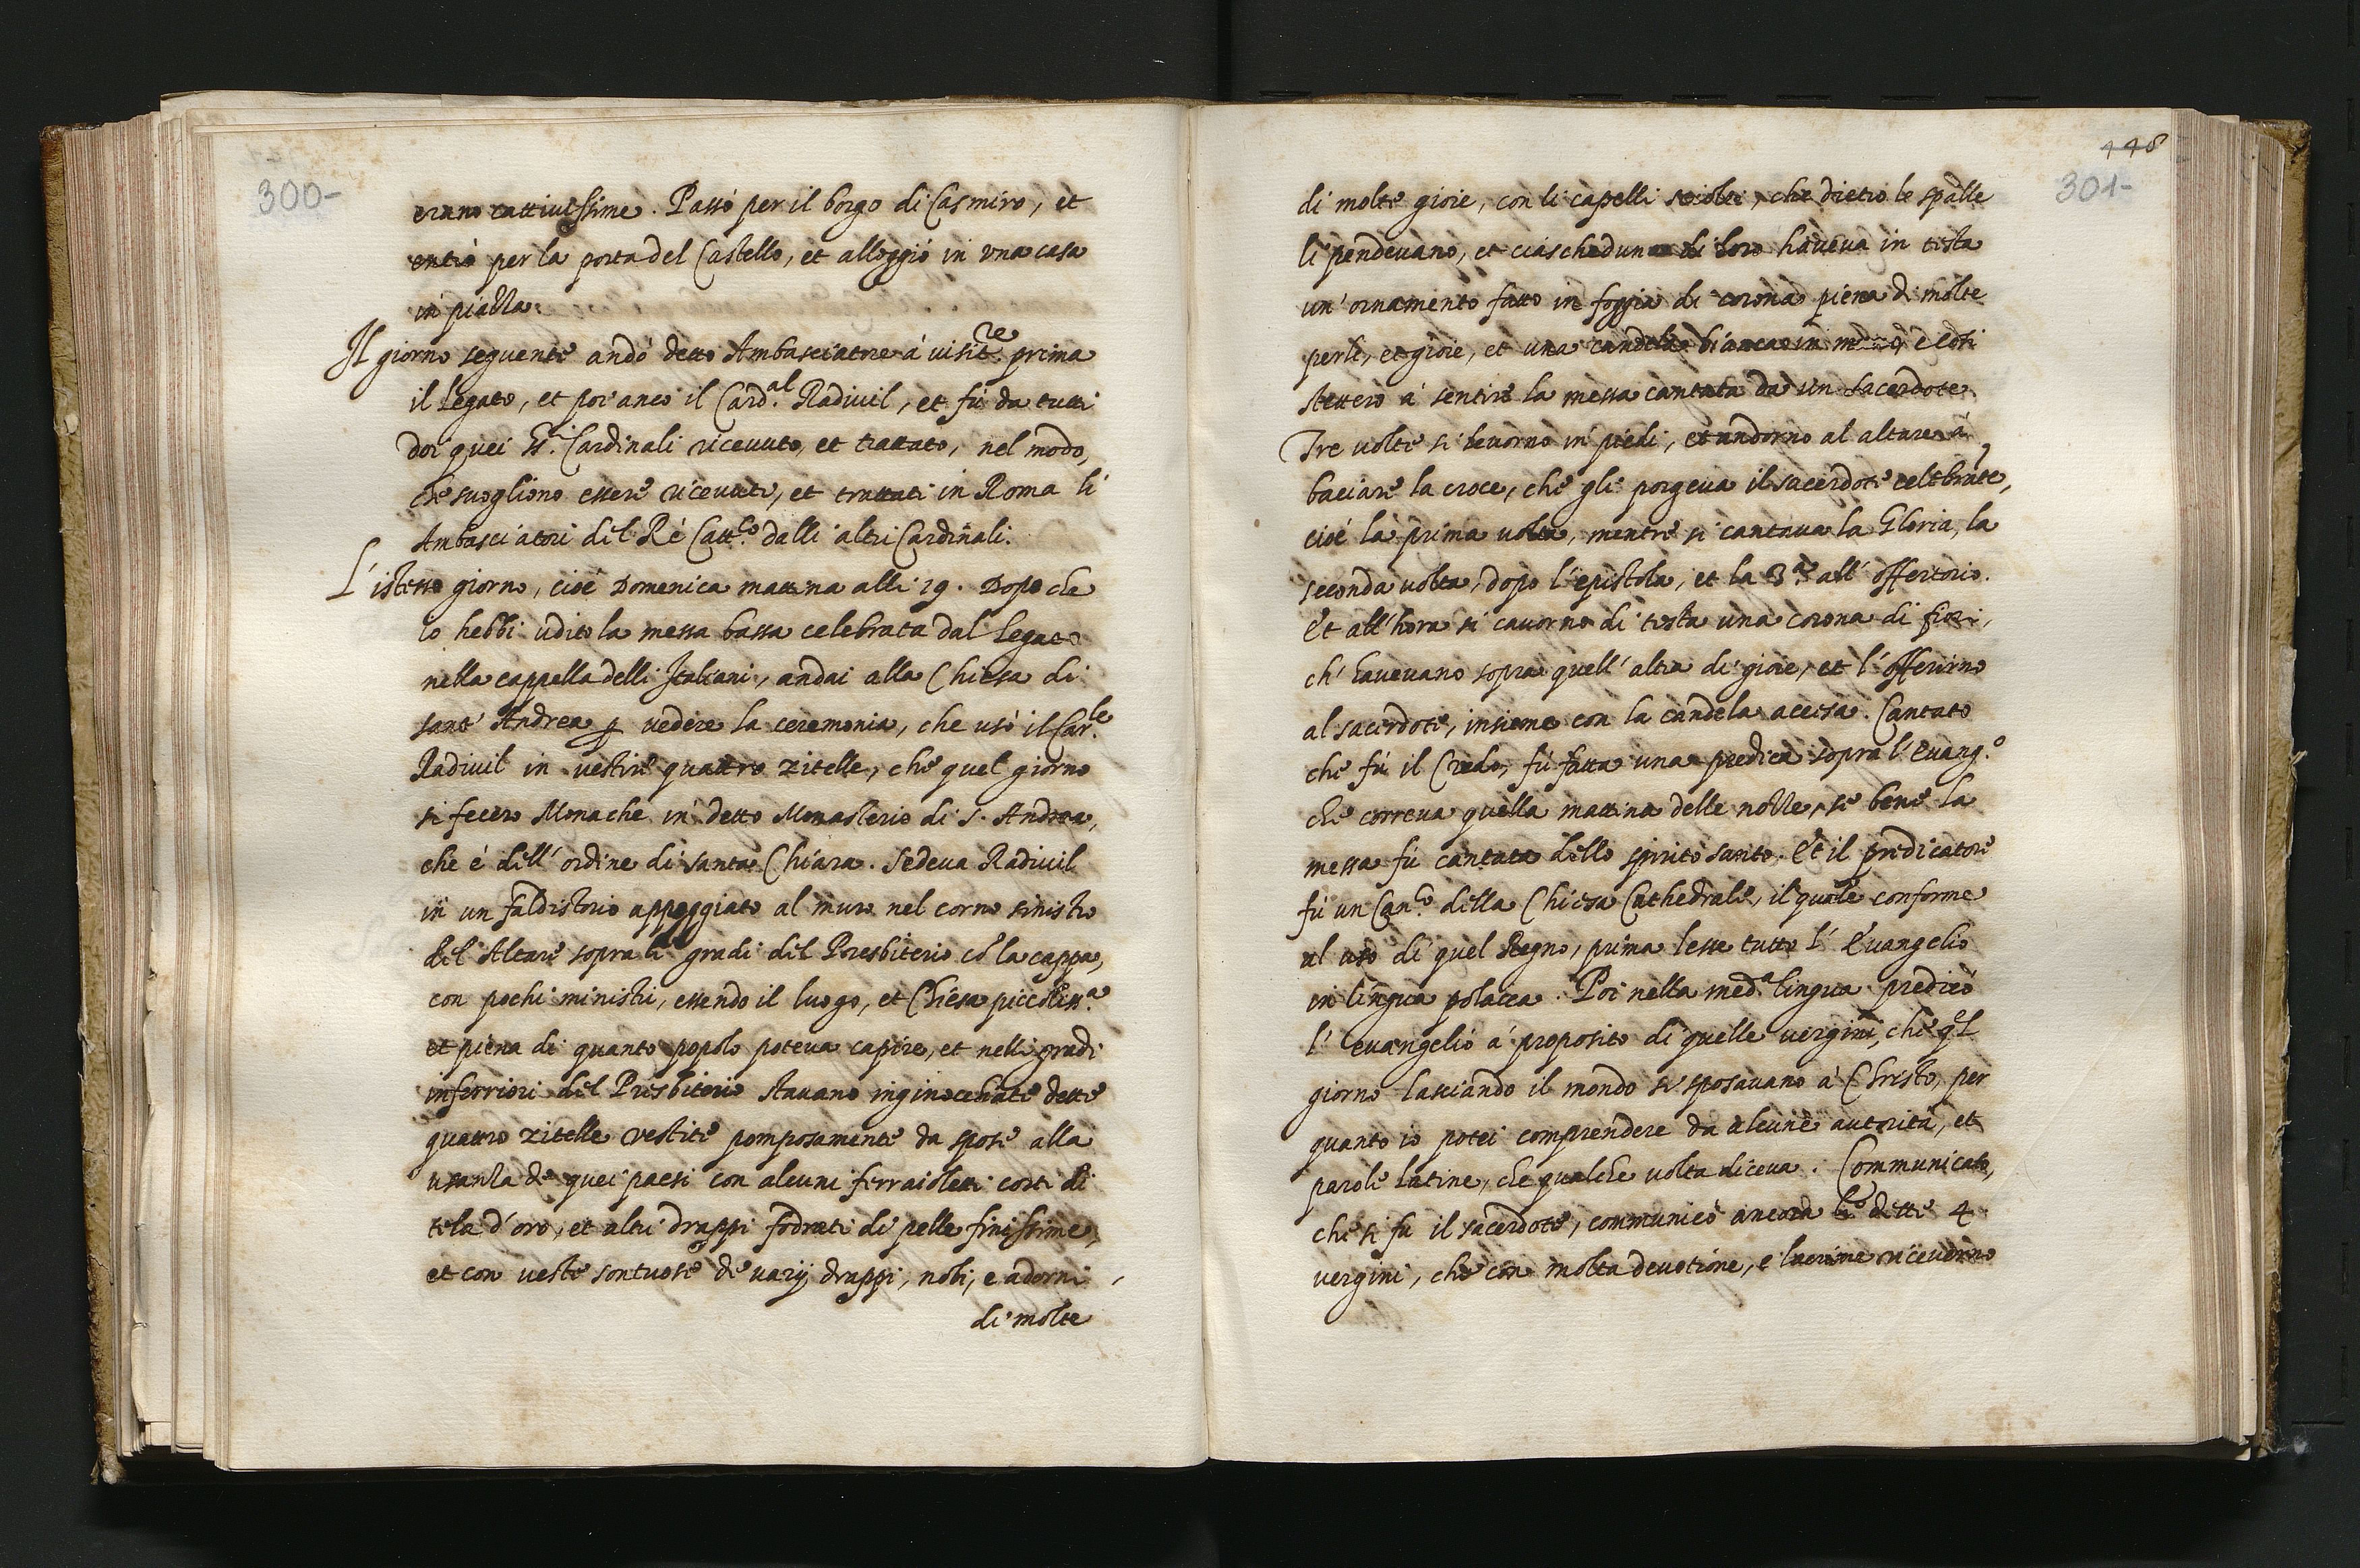 300-
erano cattiuissime. Passò per il borgo di Casmiro, et
entrò per la porta del Castello, et alloggiò in vna casa
in piazza.
Il giorno seguente andò detto Ambasciatore à uisit.re prima
il Legato, et poi anco il Card.al Radiuil, et fù da tutti
doi quei SS.i Cardinali riceuuto, et trattato, nel modo,
che sogliono essere riceuuti, et trattati in Roma li
Ambasciatori del Rè Catt.co dalli altri Cardinali.
L'istesso giorno, cioè Domenica mattina alli 19. Dopo che
io hebbi udito la messa bassa celebrata dal Legato
nella cappella delli Italiani, andai alla Chiesa di
sant' Andrea p vedere la ceremonia, che usò il Car.le
Radiuil in vestire quattro zitelle, che quel giorno
si fecero Monache in detto Monasterio di S. Andrea,
che è dell' ordine di santa Chiara. Sedeua Radiuil
in un faldistorio appoggiato al muro nel corno sinistro
del Altare sopra li gradi del Presbiterio cõ la cappa,
con pochi ministri, essendo il luogo, et Chiesa piccoliss.a
et piena di quanto popolo poteua capire, et nelli gradi
inferriori del Presbiterio stauano inginocchiate dette
quattro zitelle vestite pomposamente da spose alla
usanza de quei paesi con alcuni ferraioletti corti di
tela d'oro, et altri drappi fodrati di pelle finissime,
et con veste sontuose de uarij drappi, nobi, e adorni
di molte
448
301-
di molte gioie, con li capelli sciolti, che dietro le spalle
li pendeuano, et ciascheduna di loro haueua in testa
un' ornamento fatto in foggia di corona piena di molte
perle, et gioie, et una candela bianca in mano, e così
stettero à sentire la messa cantata da un sacerdote.
Tre uolte si leuorno in piedi, et andorno al altare à
baciare la croce, che gli porgeua il sacerdote celebrãte,
cioè la prima uolta, mentre si cantaua la Gloria, la
seconda uolta, dopo l'epistola, et la 3.a all' offertorio.
Et all'hora si cauorno di testa una corona di fiori,
ch' haueuano sopra quell' altra di gioie, et l'offerirno
al sacerdote, insieme con la candela accesa. Cantato
che fù il Credo, fù fatta una predica sopra l'Euang.o
che correua quella mattina delle nozze, se bene la
messa fù cantata dello spirito santo. Et il predicatore
fù un Can.co della Chiesa Cathedrale, il quale conforme
al uso di quel Regno, prima lesse tutto l' Euangelio
in lingua polacca. Poi nella med.a lingua predicò
l' euangelio à proposito di quelle vergini, che q.el
giorno lasciando il mondo si sposauano à Christo, per
quanto io potei comprendere da alcune autorità, et
parole latine, che qualche uolta diceua. Communicato,
che si fu il sacerdote, communicò ancora le dette 4
vergini, che con molta deuotione, e lacrime riceuerno